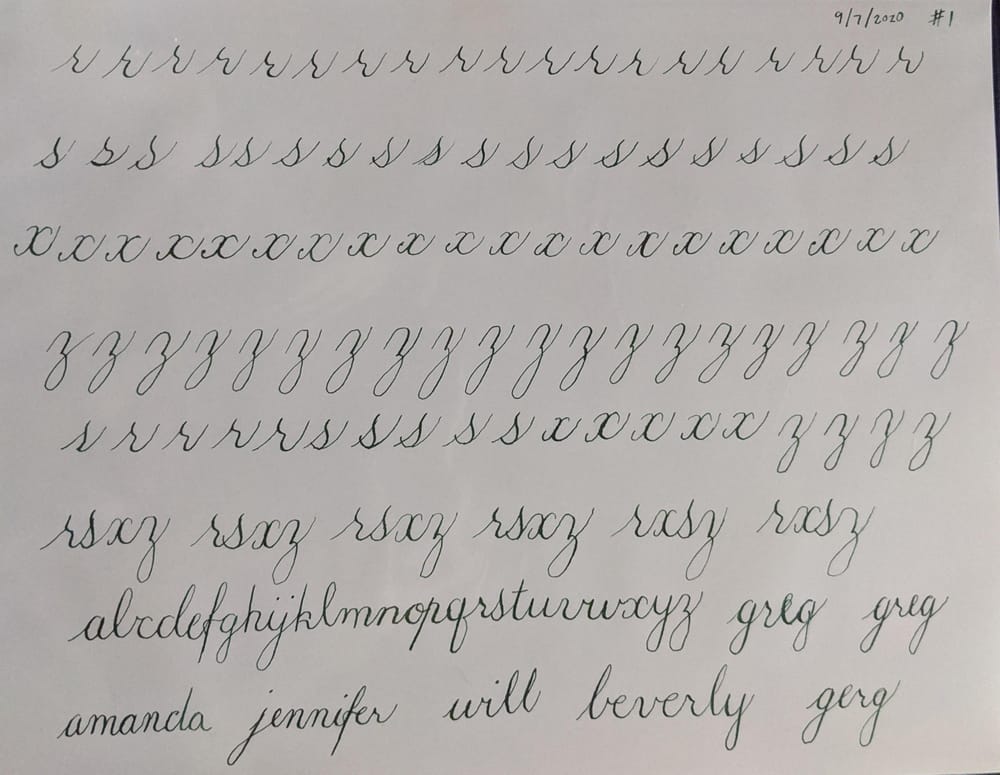 9/7/2020 #1
r r r r r r r r r r r r r r r r r r r
s s s s s s s s s s s s s s s s s s s
x x x x x x x x x x x x x x x x x x x x
z z z z z z z z z z z z z z z z z z z z
r r r r r s s s s s x x x x x z z z z
rsxz rsxz rsxz rsxz rxsz rxsz
abcdefghijklmnopqrstuvwxyz greg greg
amanda jennifer will beverly gerg